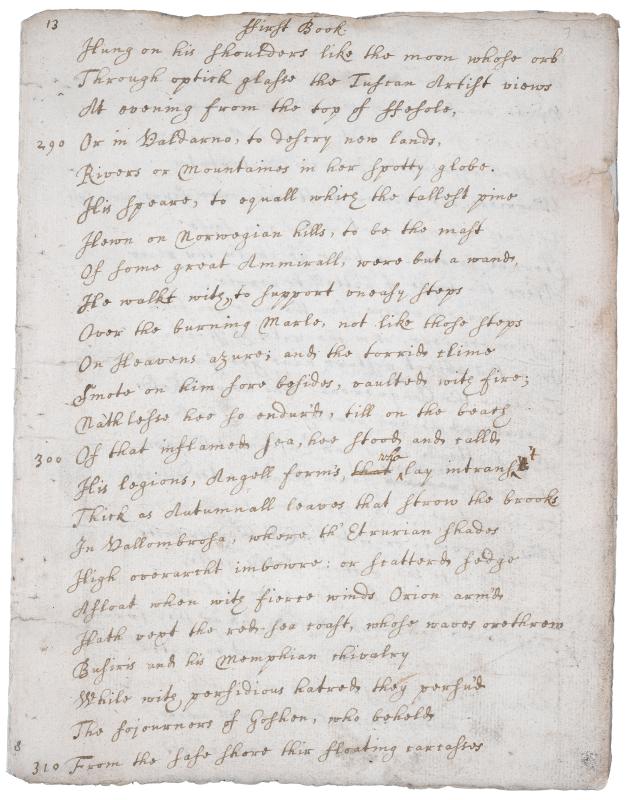 13 ffirst Book 3
Hung on his shoulders like the moon whose orb
Through optick glasse the Tuscan Artist views
At evening from the top of ffesole,
290 Or in Valdarno, to descry new lands,
Rivers or Mountaines in her spotty globe.
His speare, to equall which the tallest pine
Hewn on Norwegian hills, to be the mast
Of some great Ammirall, were but a wand,
He walkt with, to support uneasy steps
Over the burning Marle, not like those steps
On Heavens azure; and the torrid clime
Smote on him sore besides, vaulted with fire;
Nathlesse hee so endur'd, till on the beach
300 Of that inflamed sea, hee stood and calld
His legions, Angell forms, that who lay intranst
Thick as Autumnall leaves that strow the brooks
In Vallombrosa, where th' Etrurian shades
High overarcht imbowre: or scatterd sedge
Afloat when with fierce winds Orion arm'd
Hath vext the red-sea coast, whose waves orethrew
Busiris and his Memphian chivalry
While with perfidious hatred they persu'd
The sojourners of Goshen, who beheld
8
310 From the safe shore thir floating carcasses